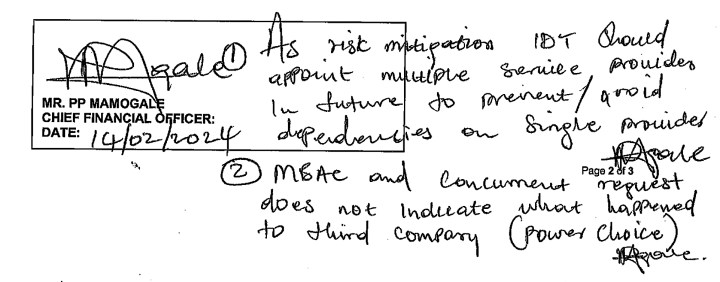 ① As risk mitigation IDT should
appoint multiple service provides
in future to prevent / avoid
dependencies on single provider
MR. PP MAMOGALE
CHIEF FINANCIAL OFFICER:
DATE: 14/02/2024
Page 2 of 3
② MBAC and concurrent request
does not indicate what happened
to third company (Power Choice)